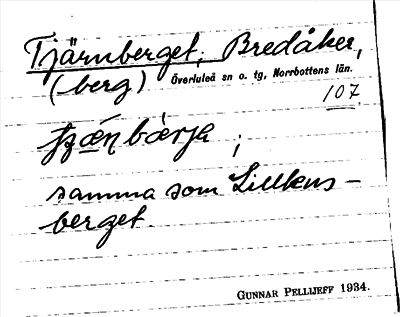 Tjärnberget, Bredåker,
(berg) Överluleå sn o. tg, Norrbottens län.
107
bǽrja ;
samma som Lillkens-
berget.
GUNNAR PELLIJEFF 1934.